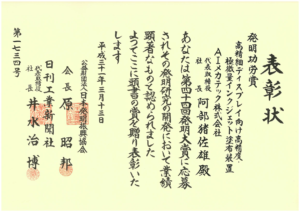 表彰状
発明功労賞
高精細ディスプレイ向け高精度、
極微量インクジェット塗布装置
AIメカテック株式会社
代表取締役社長 阿部猪佐雄殿
あなたは第四十四回発明大賞に応募
されその発明研究の開発において業績
顕著なものと認められました
よってここに頭書の賞を贈り表彰いた
します
平成三十一年三月十三日
公益財団法人日本発明振興協会
会長 原昭邦
日刊工業新聞社
代表取締役社長 井水治博
第一七三四号